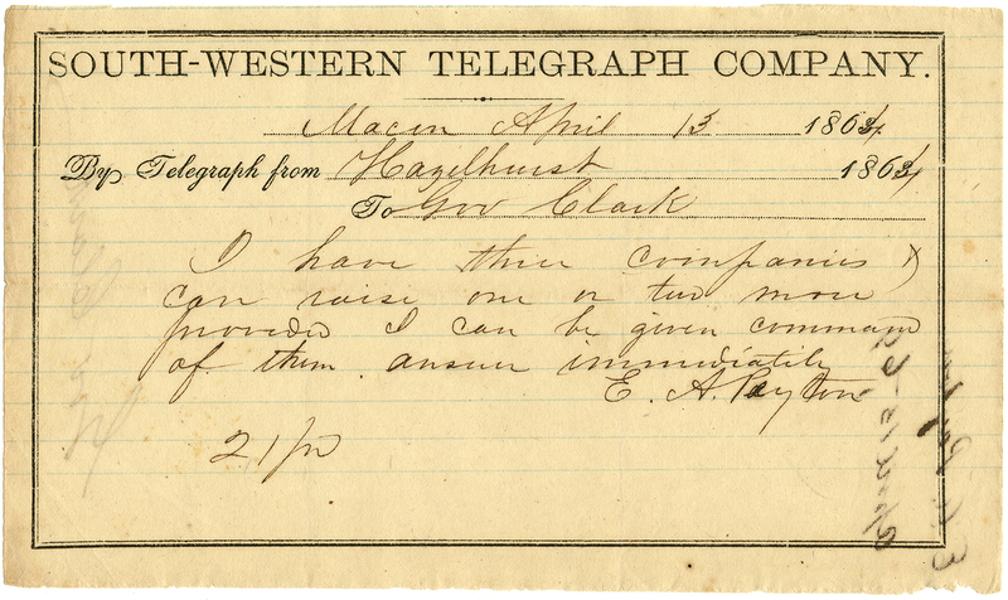 SOUTH-WESTERN TELEGRAPH COMPANY.
Macon April 13 1864
By Telegraph from Hazelhurst 1864
To Gov Clark
I have three companies &
can raise one or two more
provided I can be given command
of them. answer immediately
E. A. Peyton
21 pd